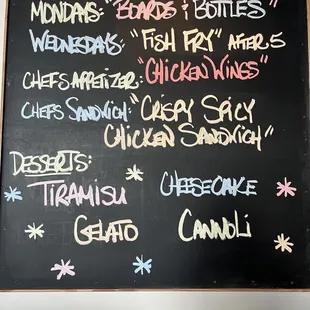 MONDAYS: "BOARDS & BOTTLES"
WEDNESDAYS: "FISH FRY" AFTER 5
CHEFS APPETIZER: "CHICKEN WINGS"
CHEFS SANDWICH: "CRISPY SPICY
CHICKEN SANDWICH"
DESSERTS:
TIRAMISU CHEESECAKE
GELATO CANNOLI